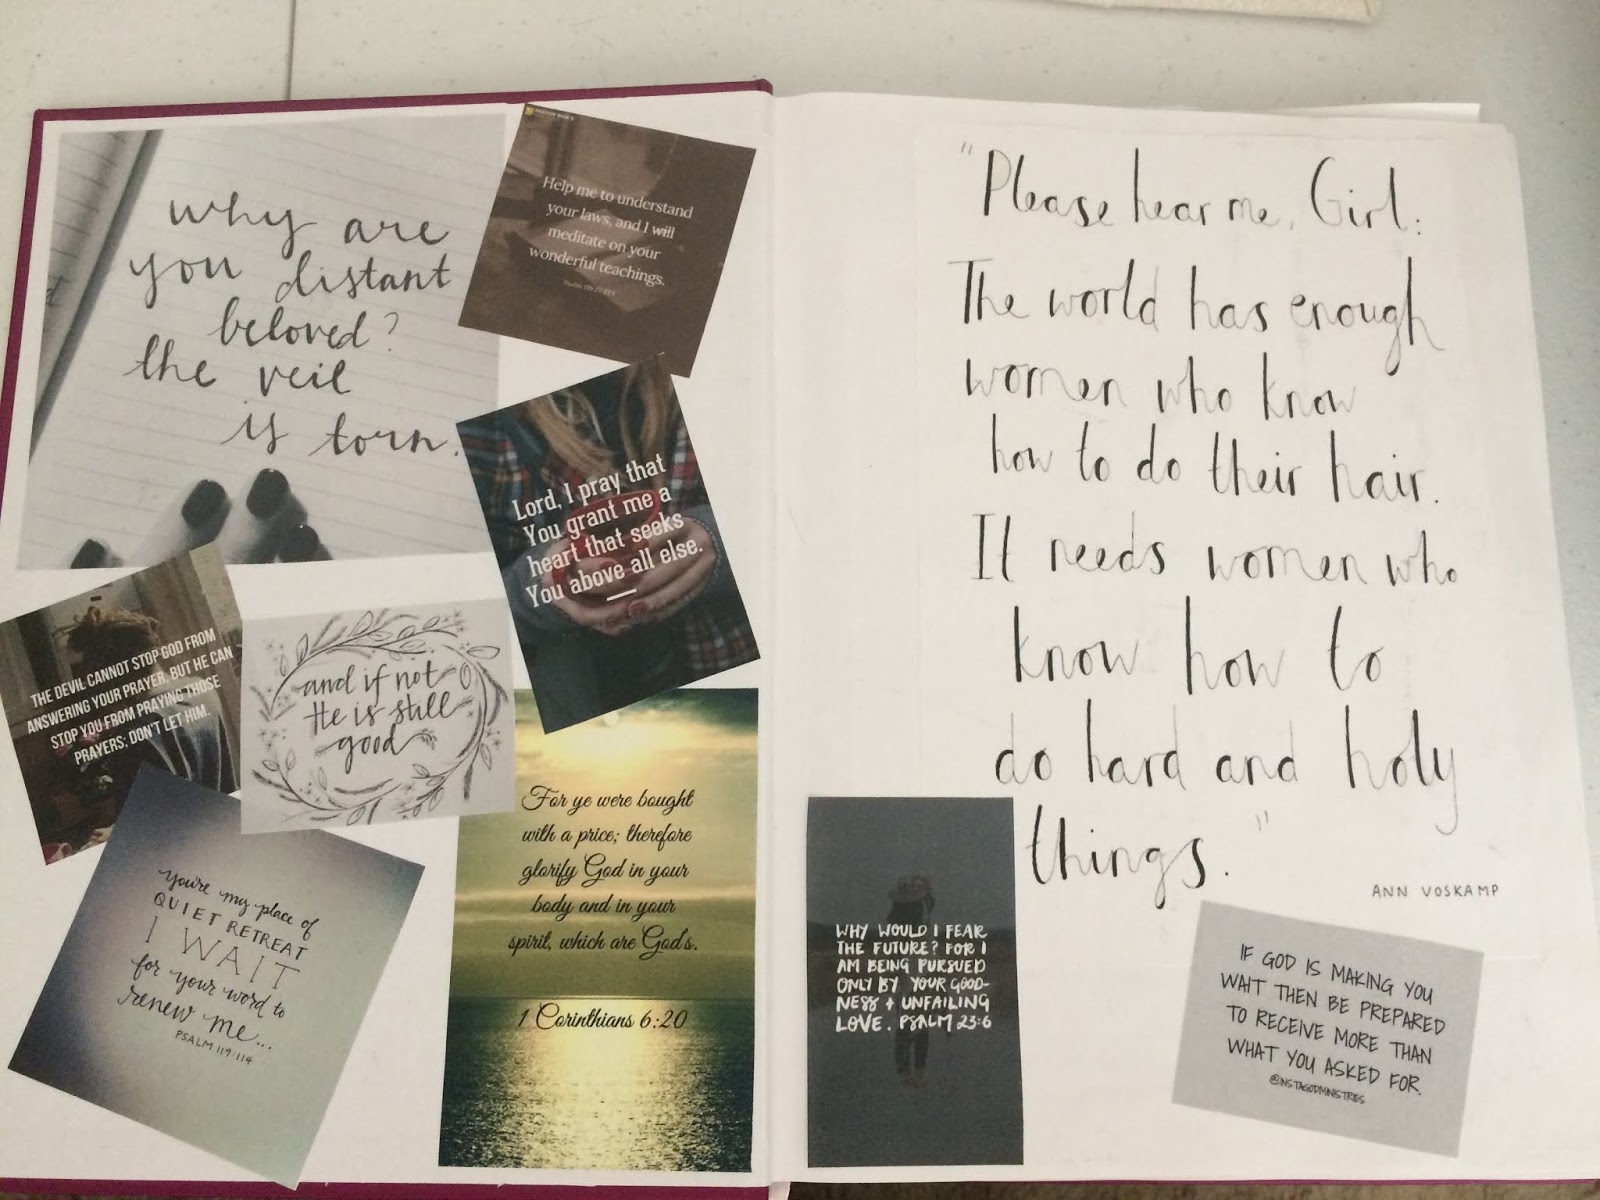 why are
you distant
beloved?
the veil
is torn.
Help me to understand
your laws, and I will
meditate on your
wonderful teachings.
Lord, I pray that
You grant me a
heart that seeks
You above all else.
THE DEVIL CANNOT STOP GOD FROM
ANSWERING YOUR PRAYER, BUT HE CAN
STOP YOU FROM PRAYING THOSE
PRAYERS; DON'T LET HIM.
and if not
He is still
good
you're my place of
QUIET RETREAT
I WAIT
for your word to
renew me...
PSALM 119:114
For ye were bought
with a price; therefore
glorify God in your
body and in your
spirit, which are God's.
1 Corinthians 6:20
"Please hear me, Girl:
The world has enough
women who know
how to do their hair.
It needs women who
know how to
do hard and holy
things."
ANN VOSKAMP
WHY WOULD I FEAR
THE FUTURE? FOR I
AM BEING PURSUED
ONLY BY YOUR GOOD-
NESS + UNFAILING
LOVE. PSALM 23:6
IF GOD IS MAKING YOU
WAIT THEN BE PREPARED
TO RECEIVE MORE THAN
WHAT YOU ASKED FOR.
@INSTAGODMINISTRIES